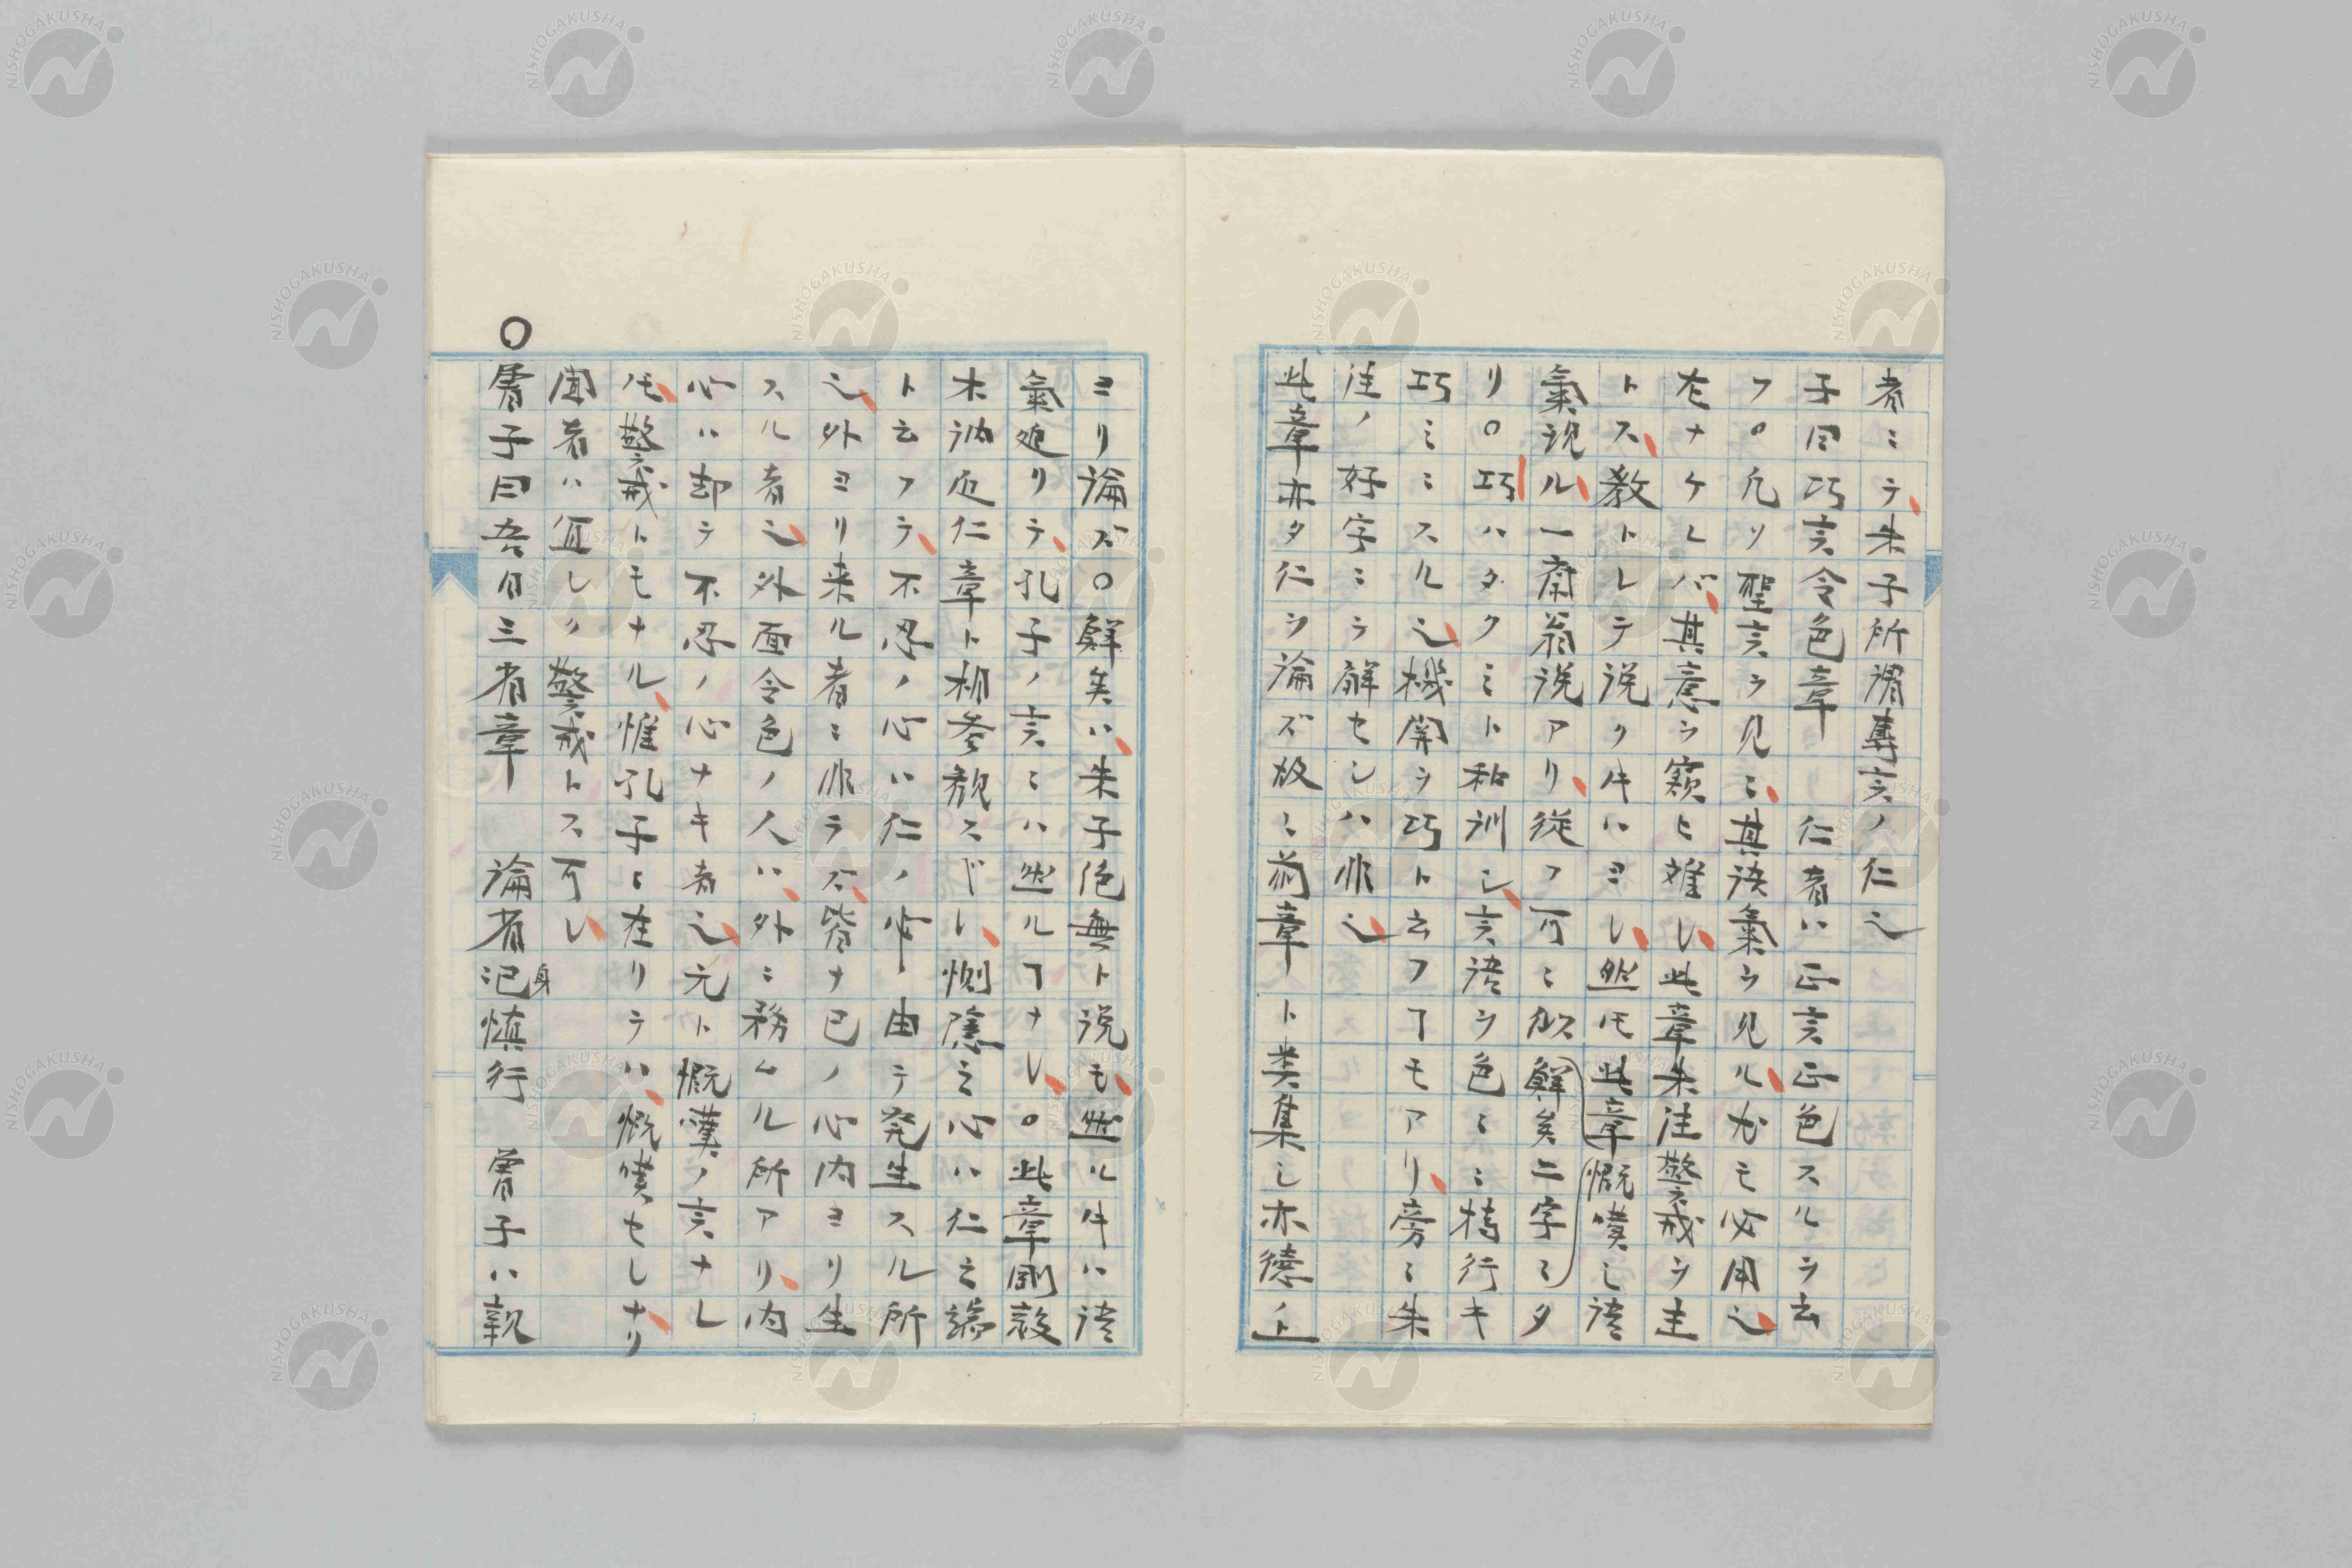 者ミテ朱子所謂専言ノ仁也
子曰巧言令色章　仁者ハ正言正色スルヲ云
フ○凡ソ聖言ヲ見ニ其語氣ヲ見ル尤モ必用也
左ナケレバ其意ヲ窺ヒ難シ此章朱注警戒ヲ主
トス教トレテ説クヰハヨシ然モ此章慨嘆し語
氣説ル一斎翁説アリ從フ可ニ似鮮矣二字ミタ
リ○巧ハタクミト和訓シ言語ヲ色ミニ構行キ
巧ミミスル也機関ヲ巧ト云フヿモアリ旁ミ朱
注ノ好字ミラ解セシハ非也
此章亦タ仁ヲ論ズ故ニ前章ト类集し亦德ノ上
ヨリ論ズ○鮮矣ハ朱子絶無ト説モ然ルヰハ語
氣迫リテ孔子ノ言ミハ然ルヿナシ○此章剛毅
木訥近仁章ト相参観スベシ惻隠之心ハ仁之端
ト云フテ不忍ノ心ハ仁ノ由テ発生スル所
也外ヨリ来ル者ミ非ラズ皆ナ己ノ心内ヨリ生
スル者也外面令色ノ人ハ外ミ務ムル所アリ内
心ハ却テ不忍ノ心ナキ者也元ト慨嘆ノ言ナレ
モ警戒トモナル惟孔子ミ在リテハ慨嘆セしナリ
聞者ハ宜しク警戒トス可し
○曽子曰吾日三省章　論省己身慎行　曽子ハ親
NISHOGAKUSHA